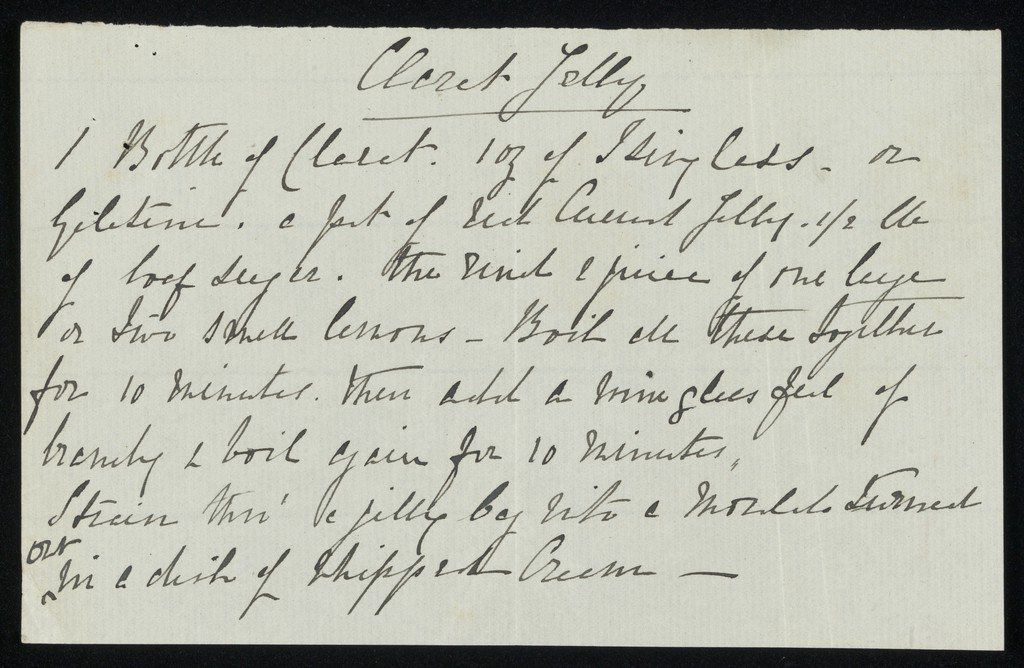 Claret Jelly
1 Bottle of Claret. 1oz of Isinglass - or
Gelatine. a pot of red Currant Jelly. 1/2 lb
of loaf sugar. The rind & juice of one large
or two small lemons - Boil all these together
for 10 minutes. then add a wine glass full of
brandy & boil again for 10 minutes,
Strain thro' a jelly bag into a mould & turned
out
in a dish of whipped Cream —